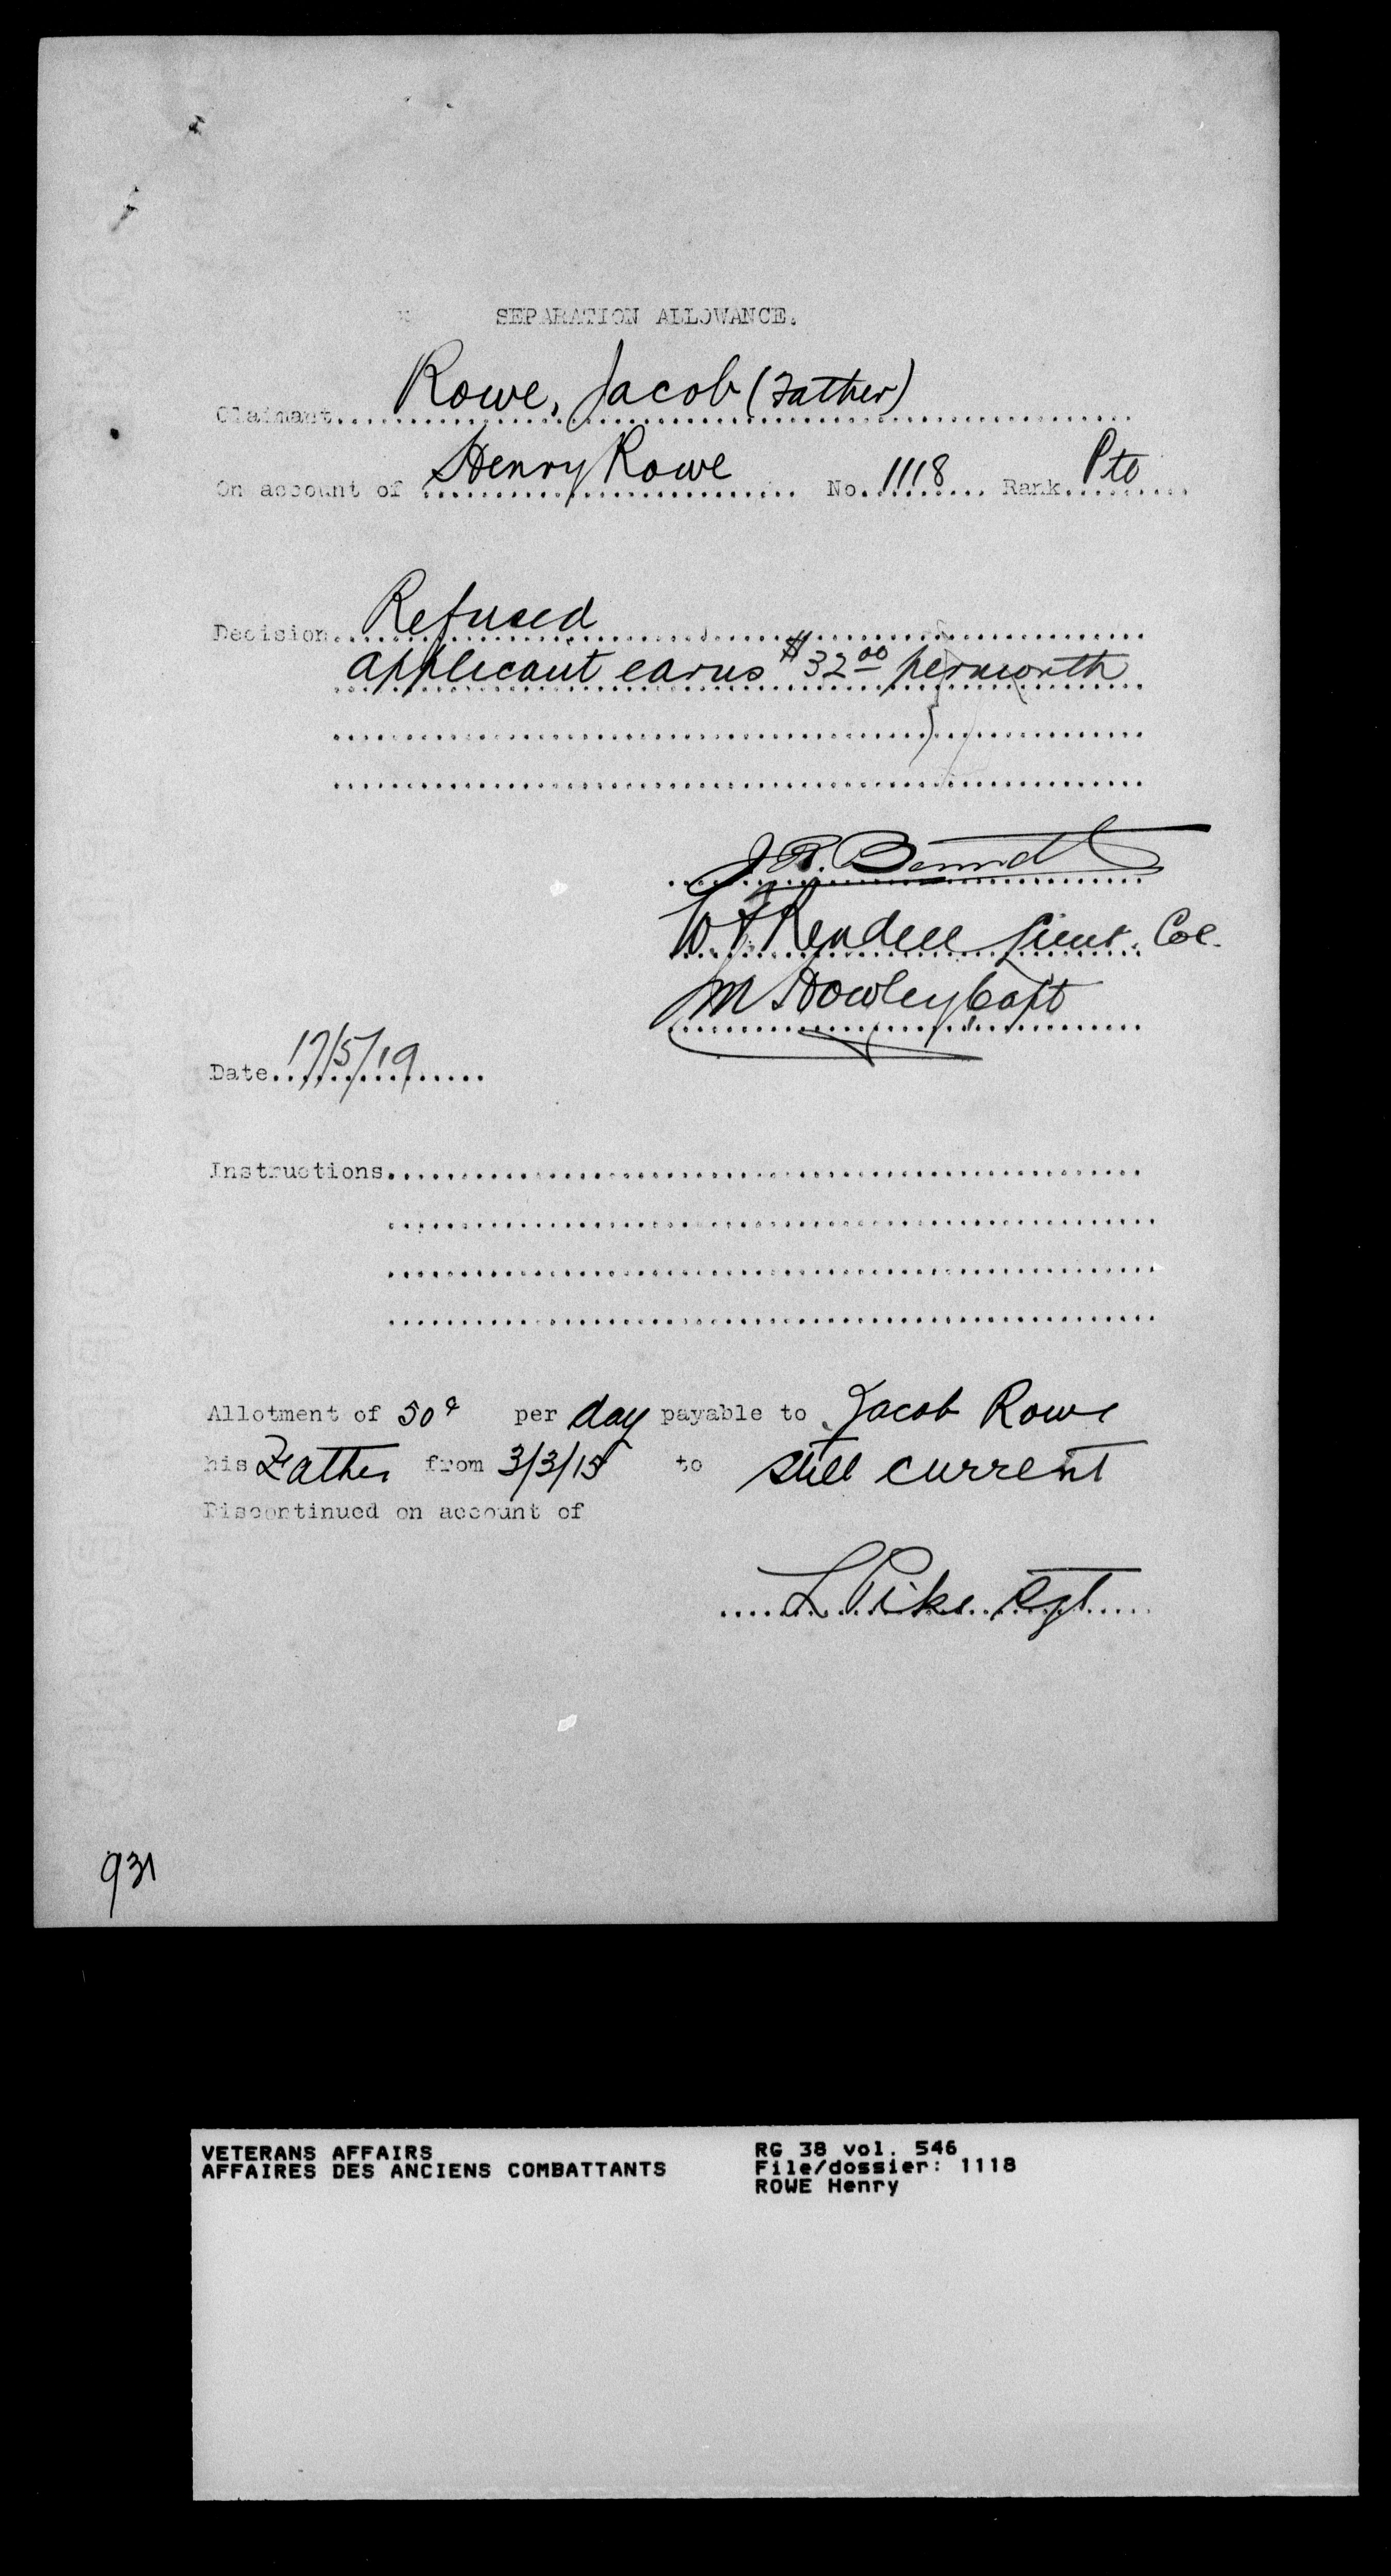 SEPARATION ALLOWANCE.
Claimant Rowe, Jacob (Father)
On account of Henry Rowe No. 1118 Rank Pte
Decision Refused
applicant earns $32 00 per month
J. R. Bennett
W F Rendell Lieut. Col.
M Howley Capt
Date 17/5/19
Instructions
Allotment of 50¢ per day payable to Jacob Rowe
his Father from 3/3/15 to still current
Discontinued on account of
L Pike Sgt
931
VETERANS AFFAIRS RG 38 vol. 546
AFFAIRES DES ANCIENS COMBATTANTS File/dossier: 1118
ROWE Henry